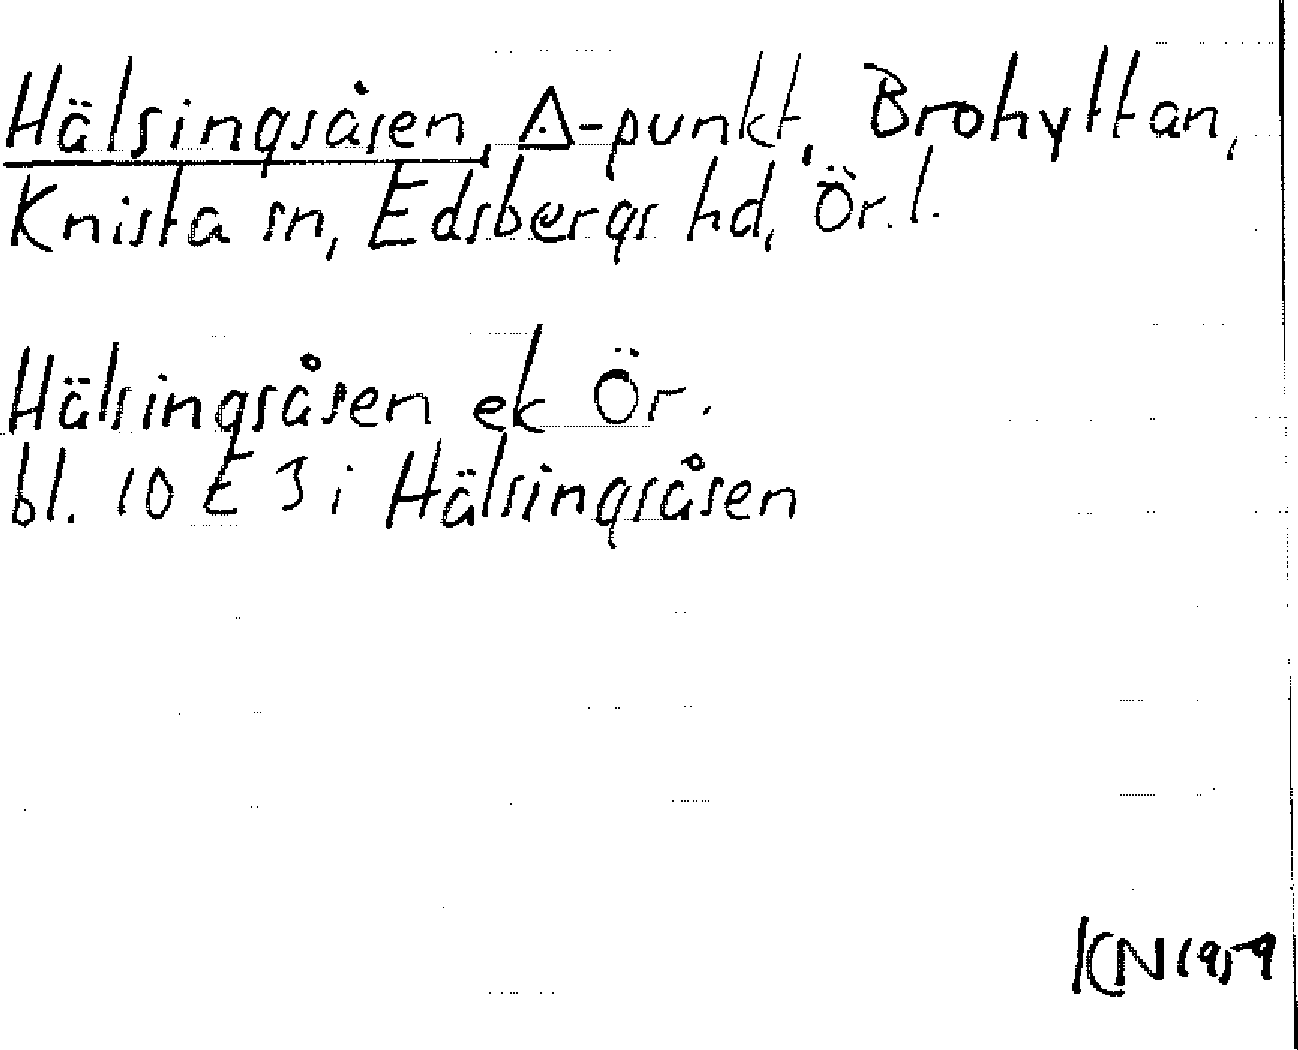 Hälsingsåsen, △-punkt, Brohyttan,
Knista sn, Edsbergs hd, Ör. l.
Hälsingsåsen ek Ör.
bl. 10 E 3 i Hälsingsåsen
KN 1959